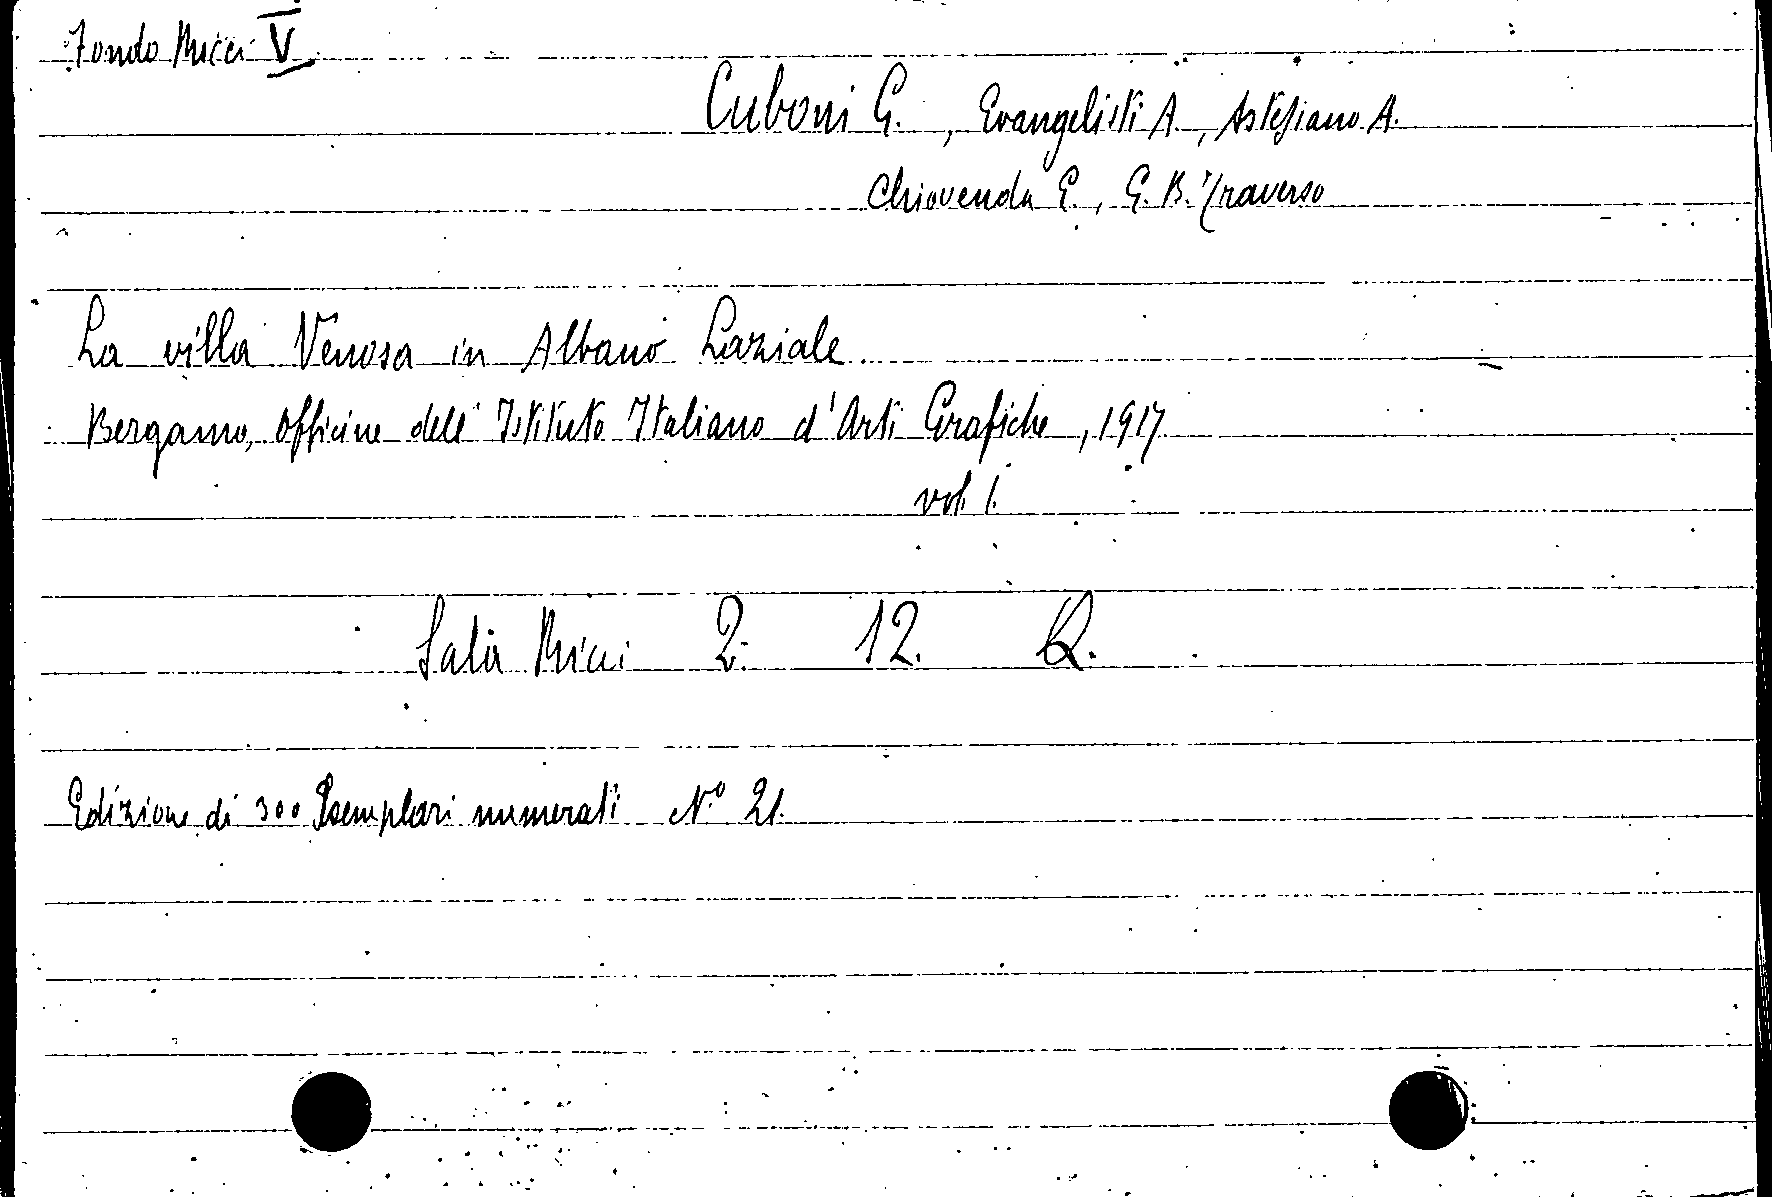 Fondo Ricci V
Cuboni G., Evangelisti A., Astesiano A.
Chiovenda E., G. B. Traverso
La villa Venosa in Albano Laziale
Bergamo, Officine dell'Istituto Italiano d'Arti Grafiche, 1917
vol. 1.
Sala Ricci 2. 12. Q.
Edizione di 300 Esemplari numerati N.° 21.